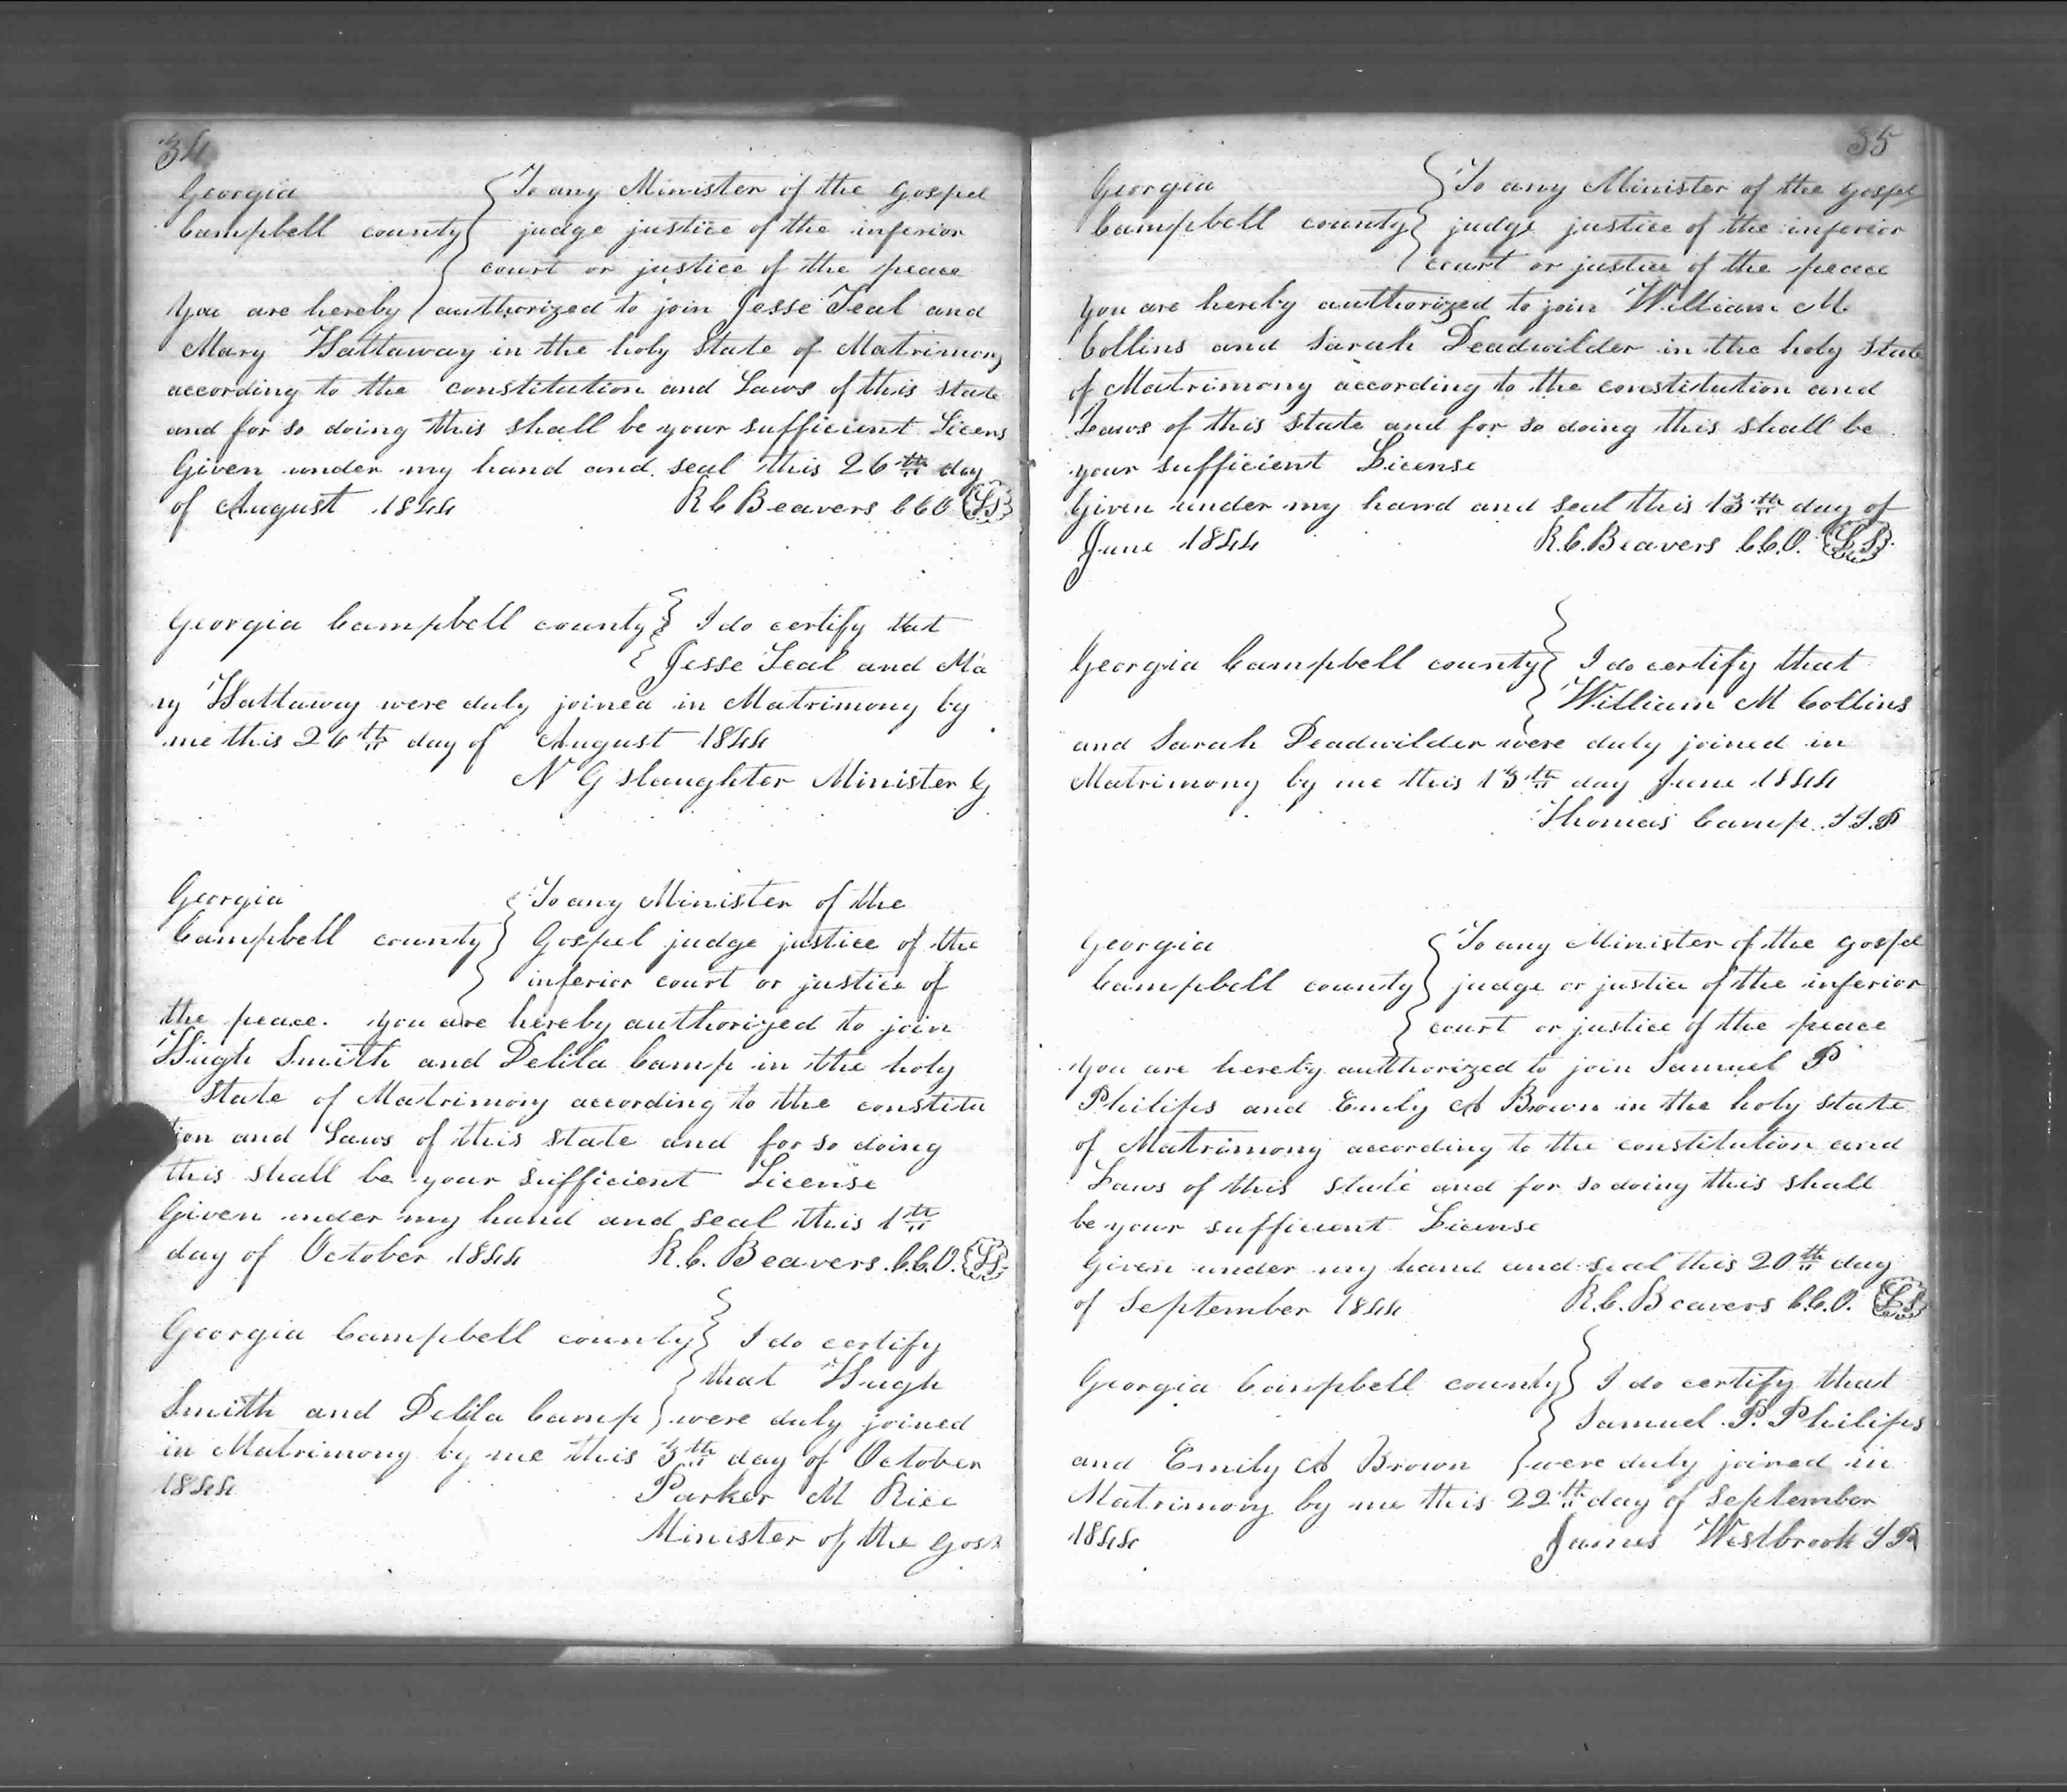 34
Georgia To any Minister of the Gospel
Campbell county judge justice of the inferior
court or justice of the peace
you are hereby authorized to join Jesse Teal and
Mary Hattaway in the holy State of Matrimony
according to the constitution and Laws of this state
and for so doing this shall be your sufficient Licens
Given under my hand and seal this 26th day
of August 1844 R C Beavers CCO LS
Georgia Campbell county I do certify that
Jesse Teal and Ma
ry Hattaway were duly joined in Matrimony by
me this 26th day of August 1844
N G Slaughter Minister G
Georgia To any Minister of the
Campbell county Gospel judge justice of the
inferior court or justice of
the peace. you are hereby authorized to join
Hugh Smith and Delila Camp in the holy
State of Matrimony according to the constitu
tion and Laws of this state and for so doing
this shall be your sufficient License
Given under my hand and seal this 1th
day of October 1844 R.C. Beavers C.C.O. LS
Georgia Campbell county I do certify
that Hugh
Smith and Delila Camp were duly joined
in Matrimony by me this 3th day of October
1844 Parker M Rice
Minister of the Gosp
35
Georgia To any Minister of the Gospel
Campbell county judge justice of the inferior
court or justice of the peace
you are hereby authorized to join William M
Collins and Sarah Deadwilder in the holy state
of Matrimony according to the constitution and
Laws of this state and for so doing this shall be
your sufficient License
Given under my hand and seal this 13th day of
June 1844 R.C. Beavers C.C.O. LS
Georgia Campbell county I do certify that
William M Collins
and Sarah Deadwilder were duly joined in
Matrimony by me this 13th day June 1844
Thomas Camp J.I.P
Georgia To any Minister of the Gospel
Campbell county judge or justice of the inferior
court or justice of the peace
you are hereby authorized to join Samuel P
Philips and Emily A Brown in the holy state
of Matrimony according to the constitution and
Laws of this state and for so doing this shall
be your sufficient License
Given under my hand and seal this 20th day
of September 1844 R.C. Beavers C.C.O. LS
Georgia Campbell county I do certify that
Samuel P. Philips
and Emily A Brown were duly joined in
Matrimony by me this 22th day of September
1844 James Westbrook JP